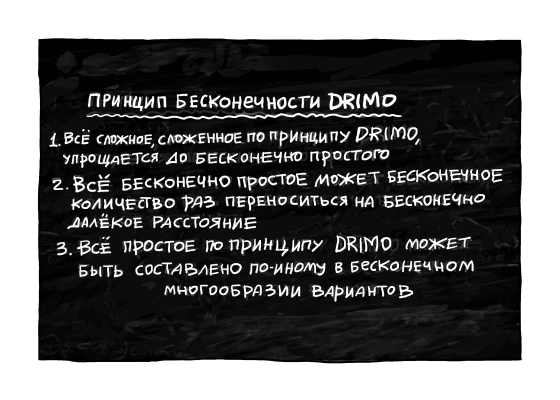 ПРИНЦИП БЕСКОНЕЧНОСТИ DRIMO
1. ВСЁ СЛОЖНОЕ, СЛОЖЕННОЕ ПО ПРИНЦИПУ DRIMO,
УПРОЩАЕТСЯ ДО БЕСКОНЕЧНО ПРОСТОГО
2. ВСЁ БЕСКОНЕЧНО ПРОСТОЕ МОЖЕТ БЕСКОНЕЧНОЕ
КОЛИЧЕСТВО РАЗ ПЕРЕНОСИТЬСЯ НА БЕСКОНЕЧНО
ДАЛЁКОЕ РАССТОЯНИЕ
3. ВСЁ ПРОСТОЕ ПО ПРИНЦИПУ DRIMO МОЖЕТ
БЫТЬ СОСТАВЛЕНО ПО-ИНОМУ В БЕСКОНЕЧНОМ
МНОГООБРАЗИИ ВАРИАНТОВ